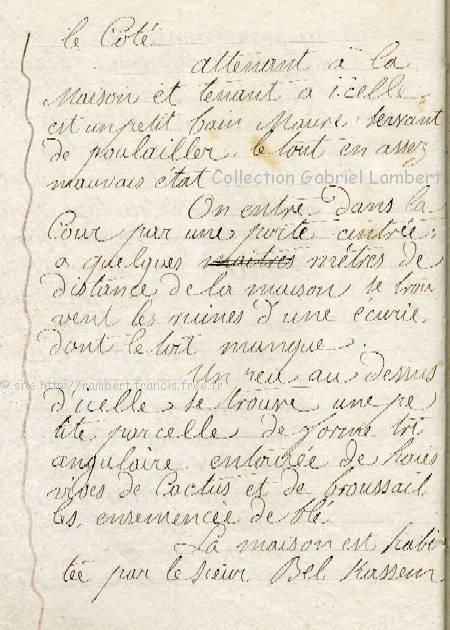 le Coté
attenant à la
Maison et tenant à icelle
est un petit bain Maure servant
de poulailler. le tout en assez
mauvais état Collection Gabriel Lambert
On entre dans la
Cour par une porte cintrée.
a quelques maitres mètres de
distance de la maison se trou
vent les ruines d'une écurie
dont le toit manque.
© site http://lambert.francis.free.fr
Un peu au dessus
d'icelle se trouve une pe
tite parcelle de forme tri
angulaire entourée de haies
vives de Cactus et de broussail
les, ensemencée de blé.
La maison est habi
tée par le sieur Bel Kassem